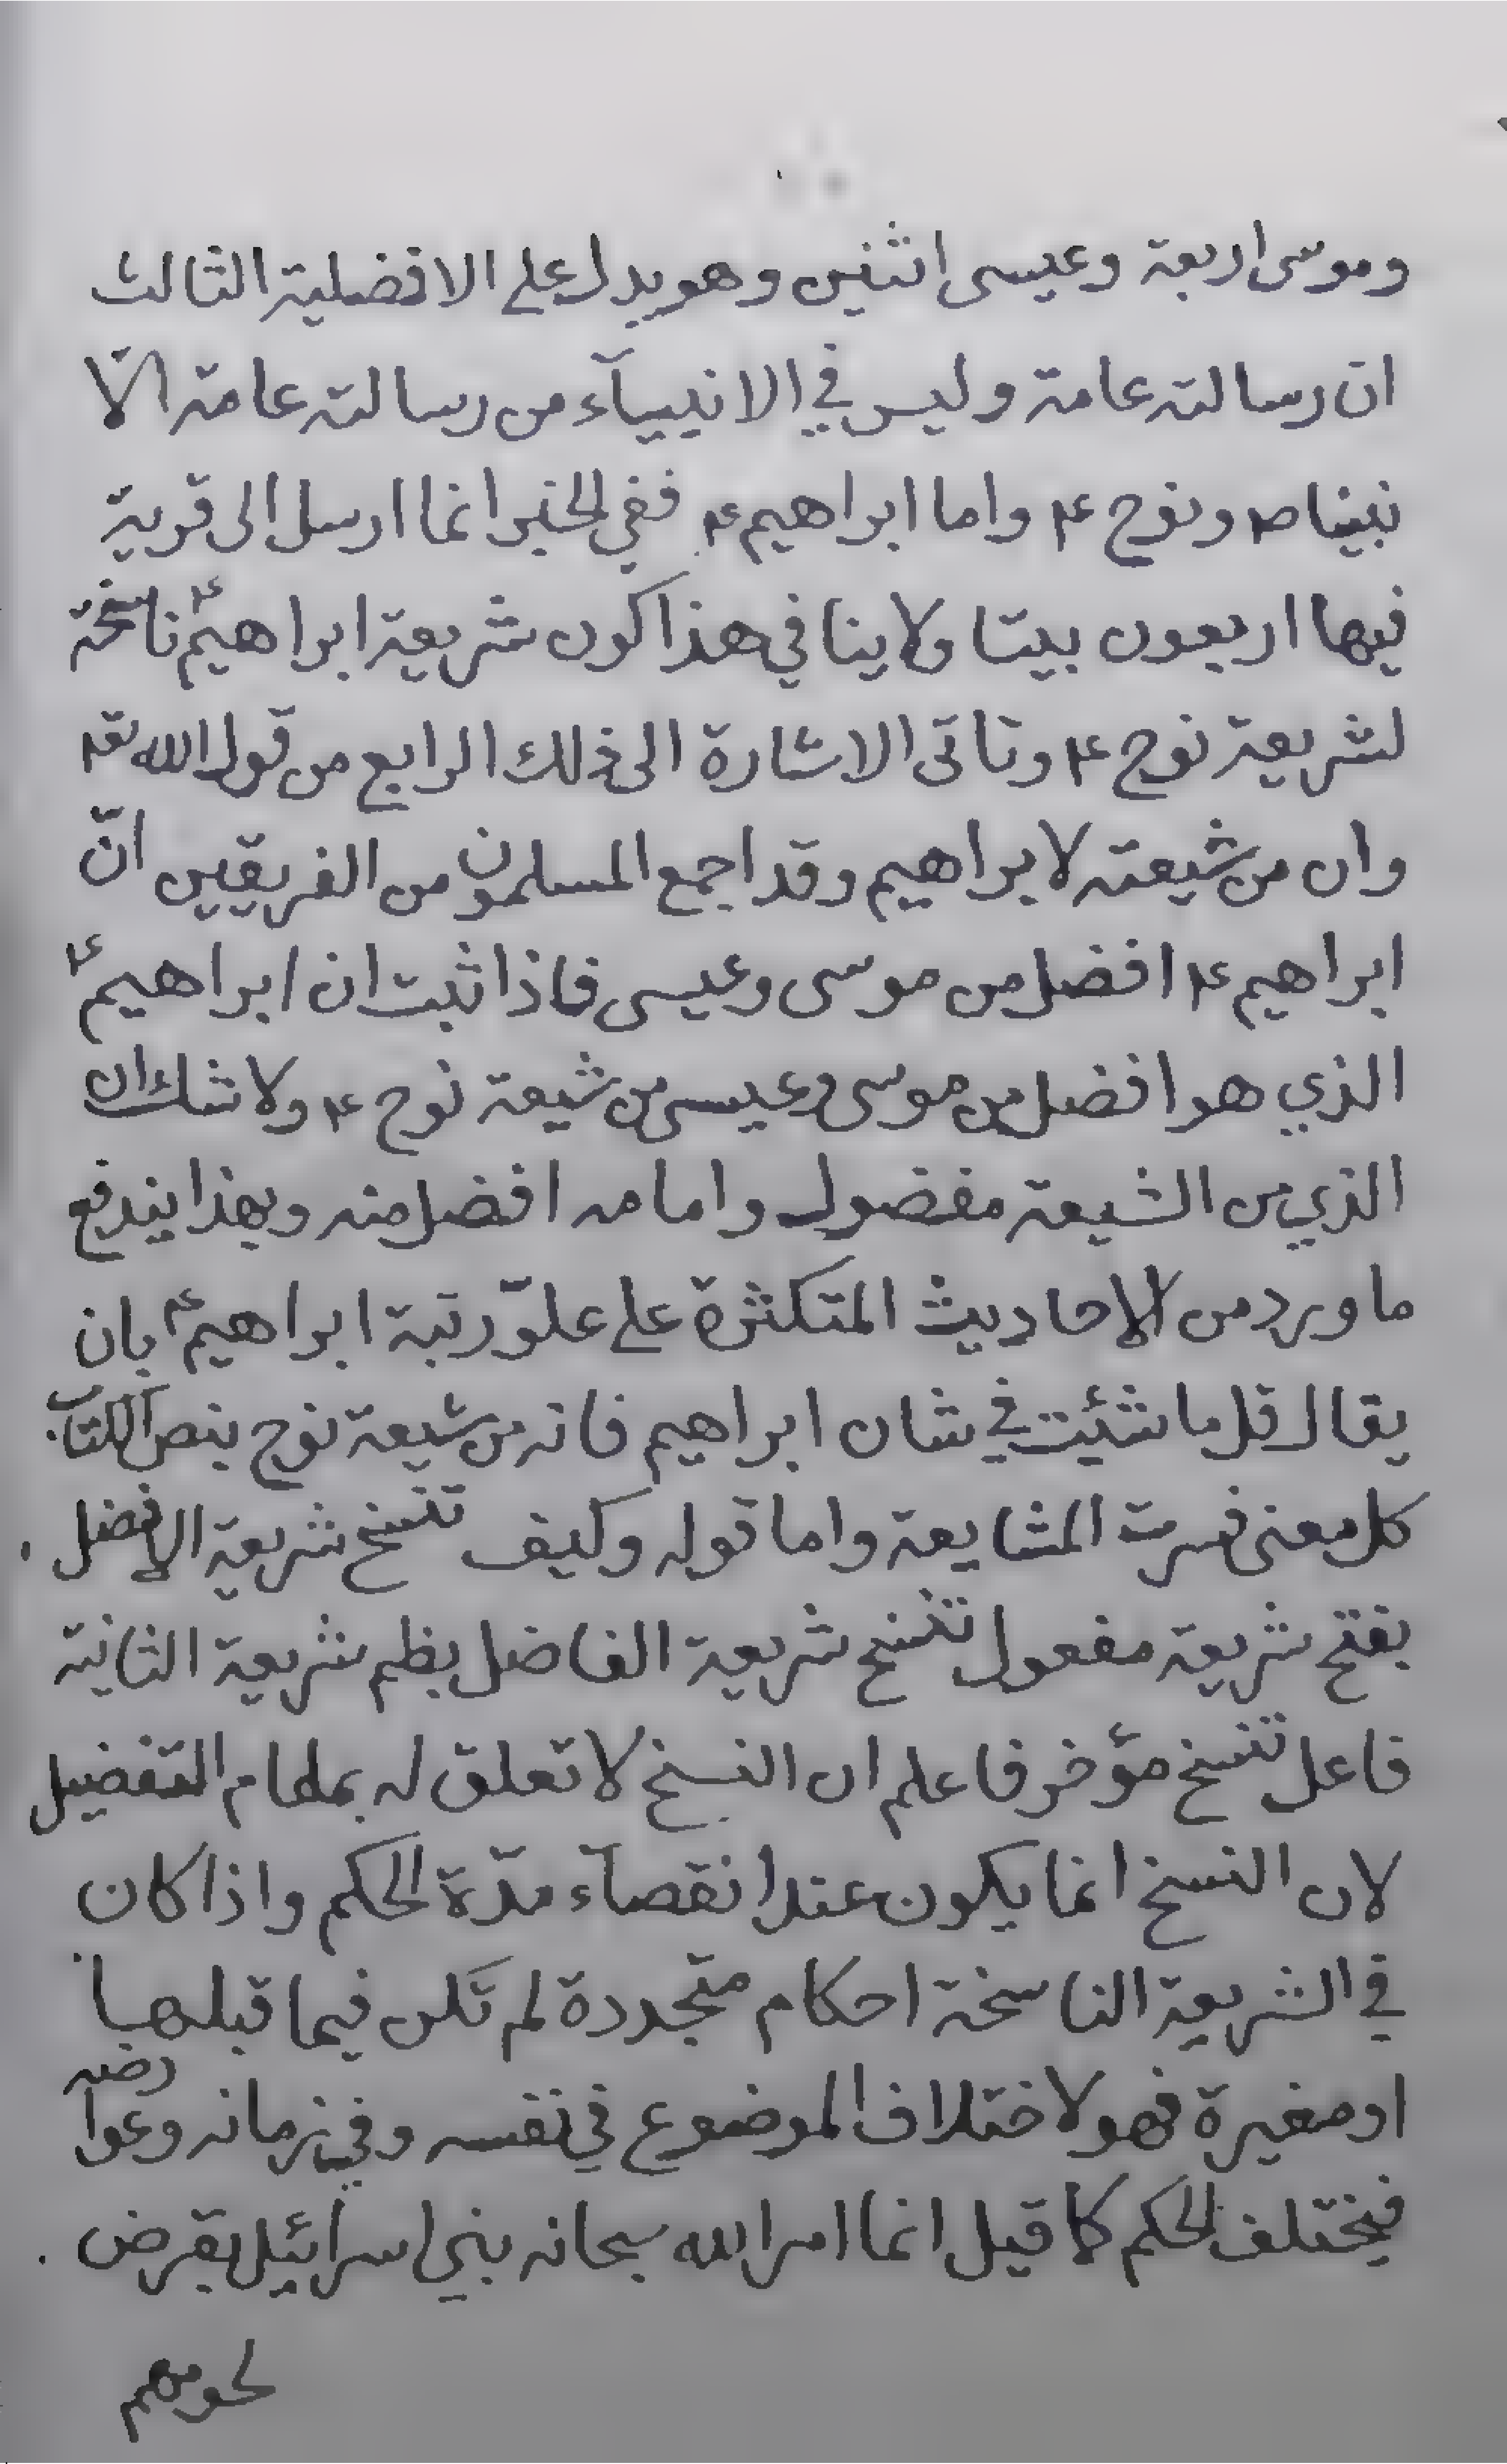 وموسى اربعة وعيسى اثنين وهو يدل على الافضلية الثالث
ان رسالته عامة وليس في الانبيآء من رسالته عامة الّا
نبينا ص ونوح ع واما ابراهيم ع ففي الخبر انما ارسل الى قرية
فيها اربعون بيتا ولا ينافي هذا كون شريعة ابراهيم ع ناسخة
لشريعة نوح ع وتاتى الاشارة الى ذلك الرابع من قول الله تع
وان من شيعته لابراهيم وقد اجمع المسلمون من الفريقين انّ
ابراهيم ع افضل من موسى وعيسى فاذا ثبت ان ابراهيم ع
الذي هو افضل من موسى وعيسى من شيعة نوح ع ولا شك ان
الذي من الشيعة مفضول وامامه افضل منه وبهذا يندفع
ما ورد من الاحاديث المتكثرة على علوّ رتبة ابراهيم ع بان
يقال قل ما شئت في شان ابراهيم فانه من شيعة نوح بنص الكتاب
كل معنى فسرت المشايعة واما قوله وكيف تنسخ شريعة الافضل
بفتح شريعة مفعول تنسخ شريعة الفاضل بظم شريعة الثانية
فاعل تنسخ مؤخر فاعلم ان النسخ لا تعلق له بمقام التفضيل
لان النسخ انما يكون عند انقضآء مدّة الحكم واذا كان
في الشريعة الناسخة احكام متجددة لم تكن فيما قبلها
او مغيرة فهو لاختلاف الموضوع في نفسه وفي زمانه وعوارضه
فيختلف الحكم كما قيل انما امر الله سبحانه بني اسرائيل بقرض
لحومهم